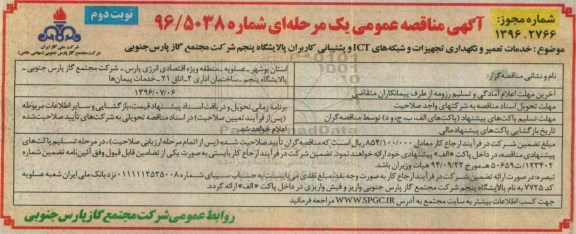 شماره مجوز:
۱۳۹۶.۲۷۶۶
آگهی مناقصه عمومی یک مرحله‌ای شماره ۹۶/۵۰۳۸
نوبت دوم
شرکت ملی گاز ایران
شرکت مجتمع گاز پارس جنوبی (سهامی خاص)
موضوع: خدمات تعمیر و نگهداری تجهیزات و شبکه‌های ICT و پشتیبانی کاربران پالایشگاه پنجم شرکت مجتمع گاز پارس جنوبی
نام و نشانی مناقصه‌گزار:
استان بوشهر ـ عسلویه ـ منطقه ویژه اقتصادی انرژی پارس ـ شرکت مجتمع گاز پارس جنوبی ـ پالایشگاه پنجم ـ ساختمان اداری ۲ـ اتاق ۲۱ ـ خدمات پیمان‌ها
آخرین مهلت اعلام آمادگی و تسلیم رزومه از طرف پیمانکاران متقاضی
۱۳۹۶/۰۷/۰۶
مهلت تحویل اسناد مناقصه به شرکتهای واجد صلاحیت
مهلت تسلیم پاکت‌های پیشنهاد (پاکت‌های الف، ب، ج، و د) توسط مناقصه‌گران
تاریخ بازگشایی پاکت‌های پیشنهاد مالی
برنامه زمانی تحویل و دریافت اسناد پیشنهاد قیمت، بازگشایی و سایر اطلاعات مربوطه (پس از فرآیند تعیین صلاحیت) در اسناد مناقصه تحویلی به شرکت‌های تأیید صلاحیت‌شده اعلام خواهد شد.
مبلغ تضمین شرکت در فرآیند ارجاع کار معادل ۸۵۴/۱۰۰/۰۰۰ ریال است که مناقصه‌گران تأیید صلاحیت شده (پس از اتمام مرحله ارزیابی صلاحیت)، در مرحله تسلیم پاکت‌های پیشنهادی مناقصه، در داخل پاکت «الف» پیشنهادی خود ارائه خواهند نمود. تضمین شرکت در فرآیند ارجاع کار بایستی به صورت یکی از تضامین قابل قبول وفق آئین‌نامه تضمین شماره ۱۲۳۴۰۲/ت۵۰۶۵۹ هـ مورخ ۹۴/۰۹/۲۲ هیأت وزیران باشد.
تبصره: در صورت ارائه تضمین شرکت در فرآیند ارجاع کار به صورت وجه نقد، مبلغ نقدی می‌بایست به حساب سیبای شماره نزد بانک ملی ایران شعبه عسلویه کد ۷۷۲۵ به نام پالایشگاه پنجم شرکت مجتمع گاز پارس جنوبی واریز و فیش واریزی در داخل پاکت «الف» ارائه گردد.
جهت کسب اطلاعات بیشتر به سایت مجتمع به آدرس WWW.SPGC.IR مراجعه فرمائید
روابط عمومی شرکت مجتمع گاز پارس جنوبی